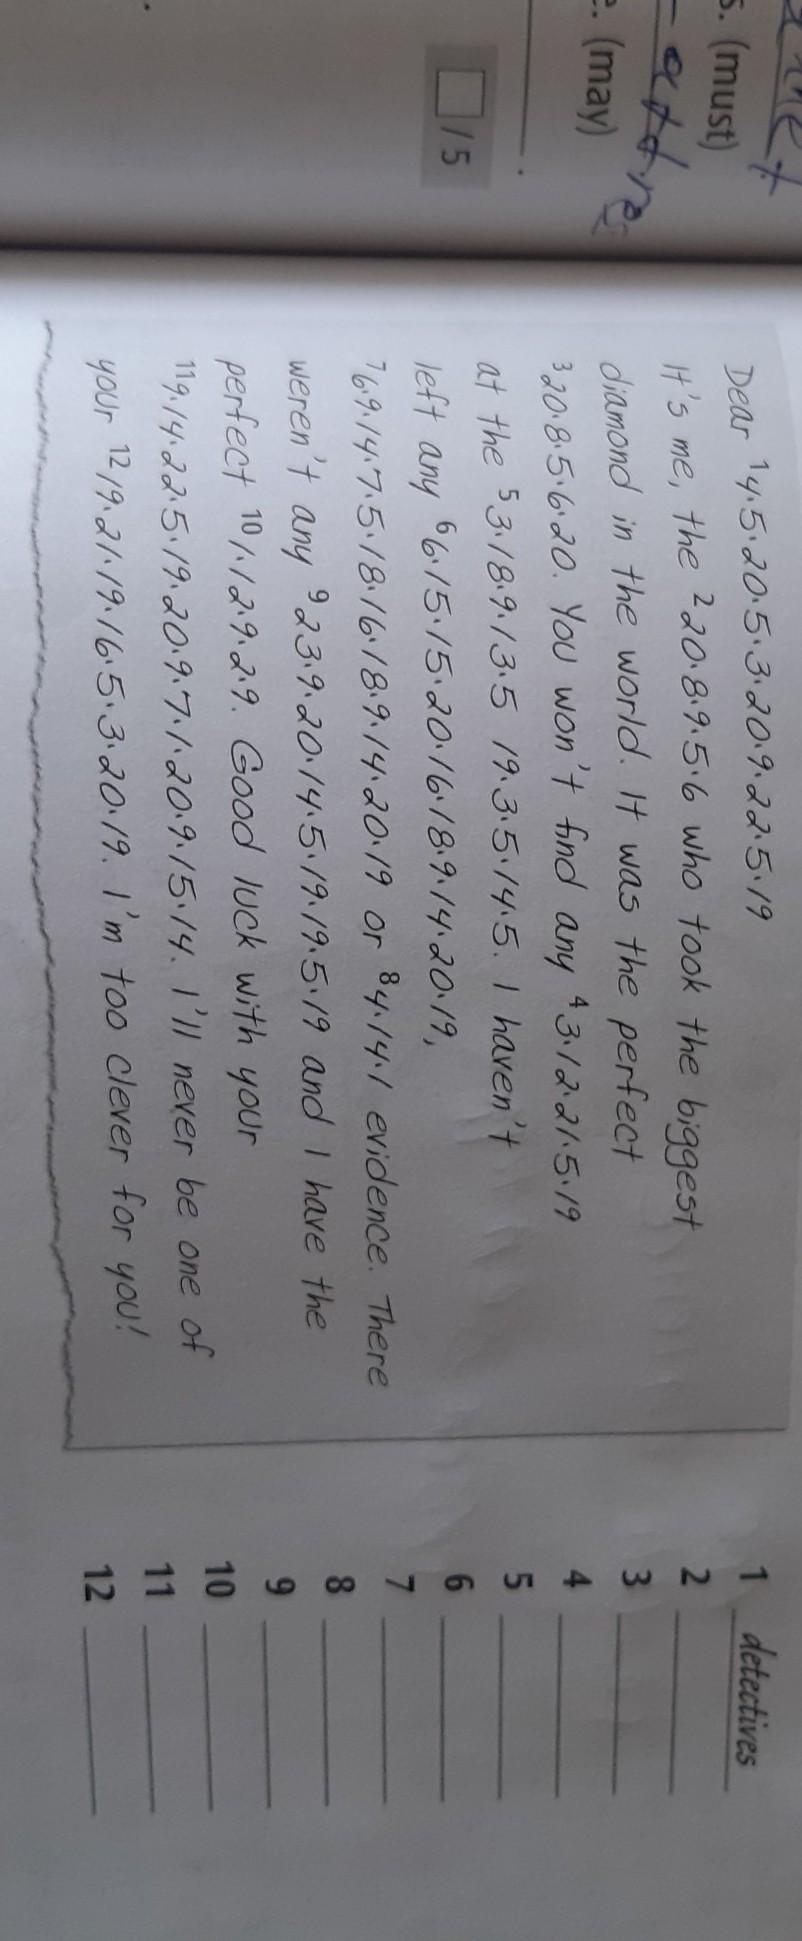 s. (must)
e. (may)
/ 5
Dear ¹4.5.20.5.3.20.9.22.5.19
It's me, the ²20.8.9.5.6 who took the biggest
diamond in the world. It was the perfect
³20.8.5.6.20. You won't find any ⁴3.12.21.5.19
at the ⁵3.18.9.13.5 19.3.5.14.5. I haven't
left any ⁶6.15.15.20.16.18.9.14.20.19,
⁷6.9.14.7.5.18.16.18.9.14.20.19 or ⁸4.14.1 evidence. There
weren't any ⁹23.9.20.14.5.19.19.5.19 and I have the
perfect ¹⁰1.12.9.2.9. Good luck with your
¹¹9.14.22.5.19.20.9.7.1.20.9.15.14. I'll never be one of
your ¹²19.21.19.16.5.3.20.19. I'm too clever for you!
1 detectives
2
3
4
5
6
7
8
9
10
11
12